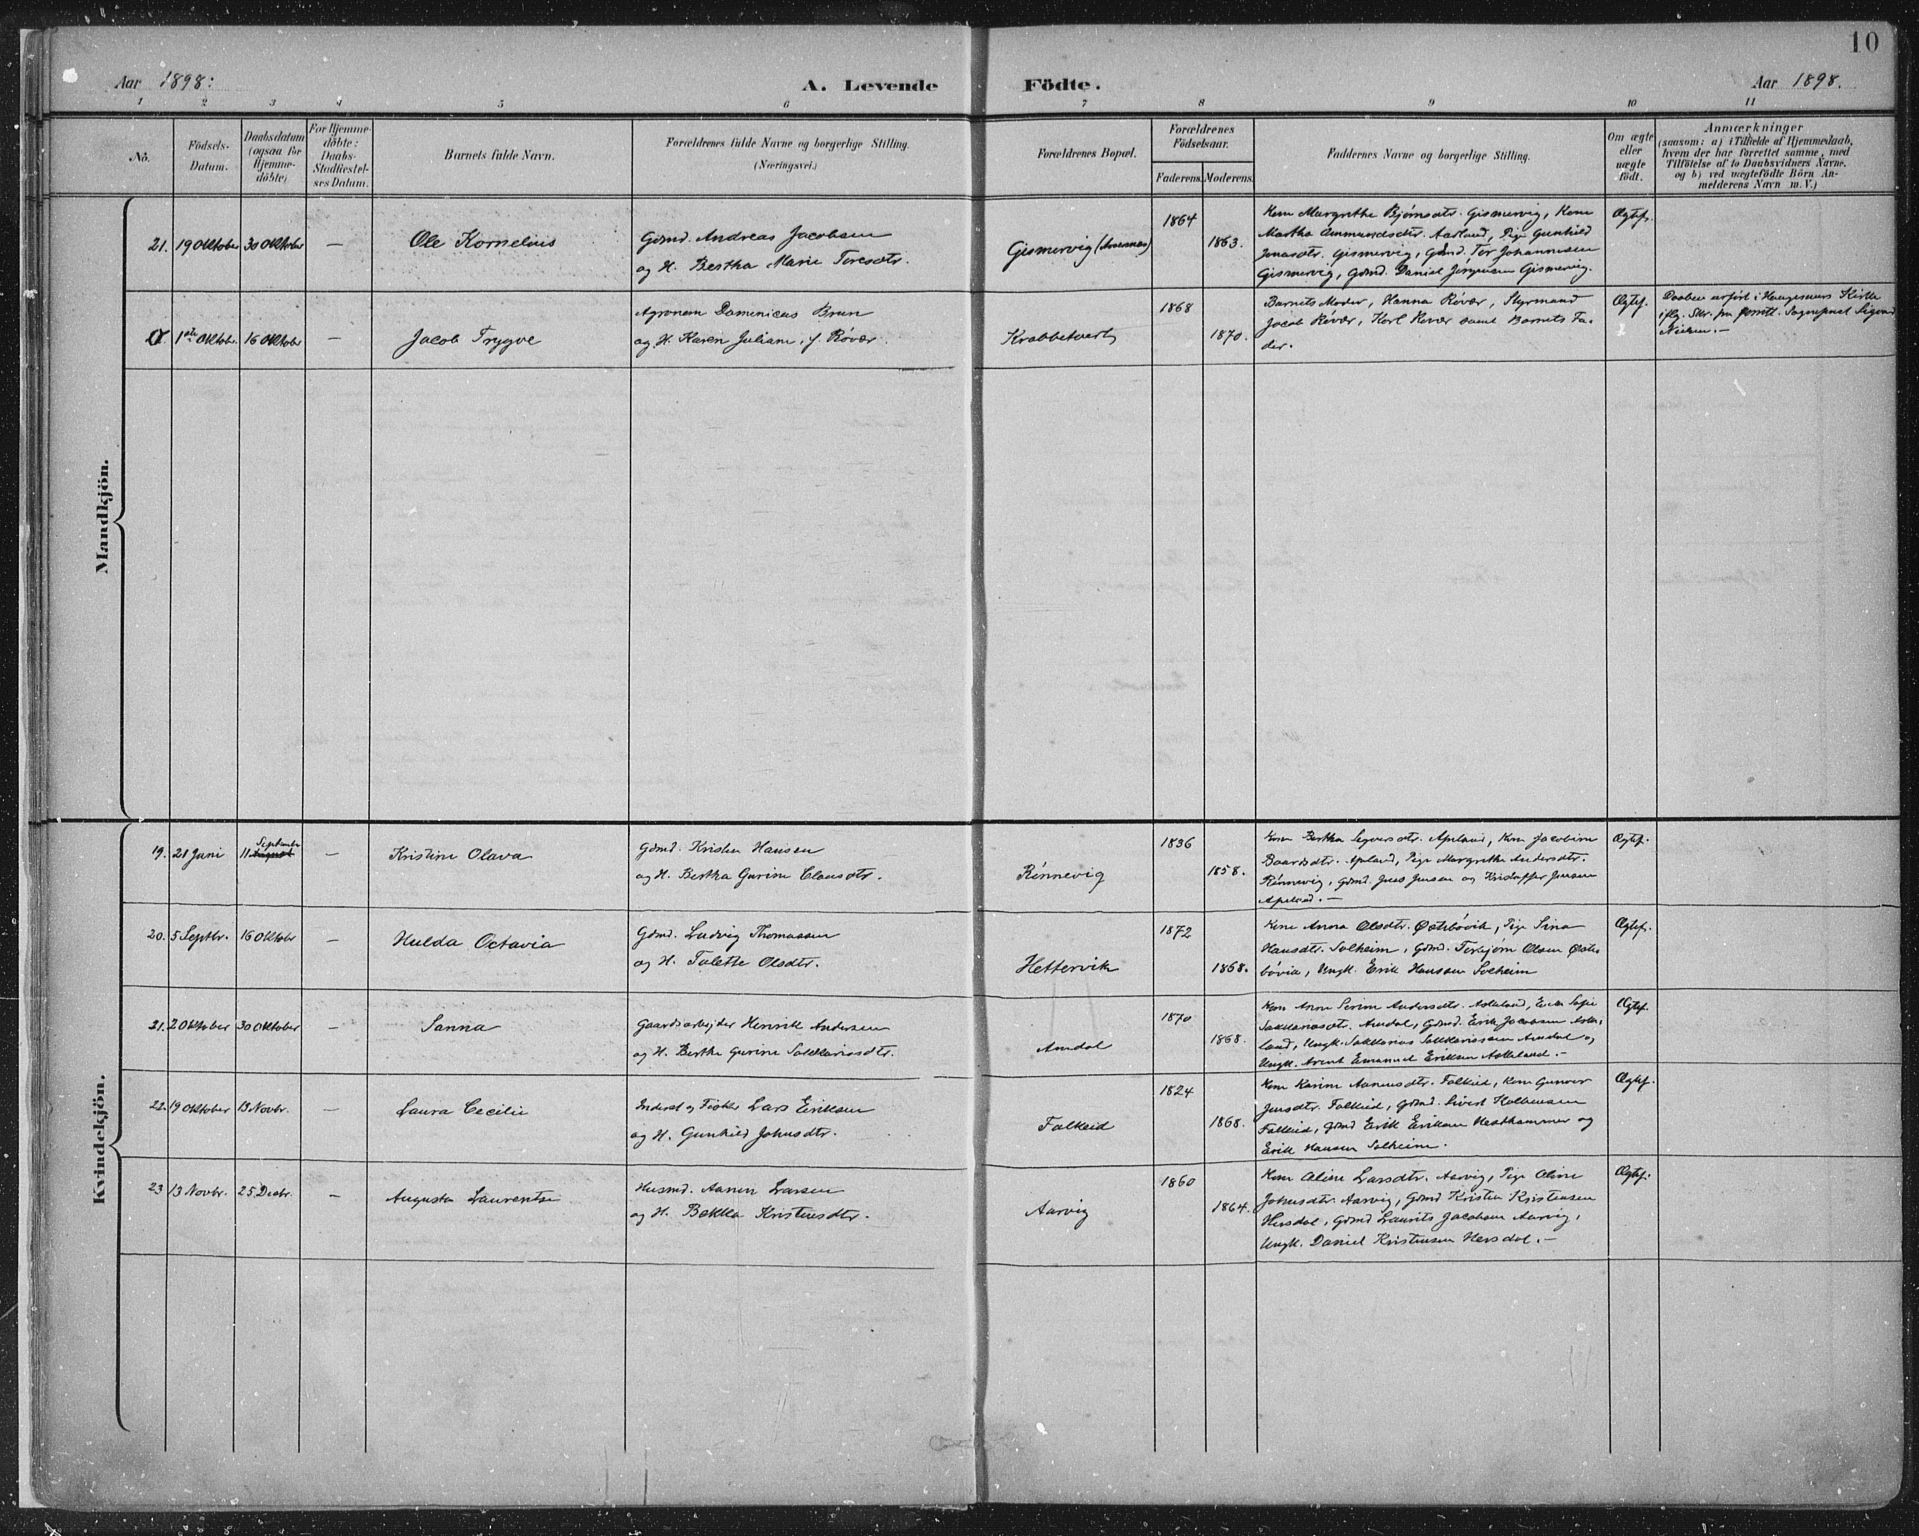 10
Aar 1898:
A. Levende
Födte.
Aar 1898.
1 2 3 4 5 6 7 8 9 10 11
No.
Födsels-
Datum.
Daabsdatum
(ogsaa for
Hjemme-
döbte)
For Hjemme-
döbte:
Daabs-
Stadfæstel-
ses Datum.
Barnets fulde Navn.
Forældrenes fulde Navne og borgerlige Stilling.
(Næringsvei.)
Forældrenes Bopæl.
Forældrenes
Födselsaar.
Faderens. Moderens.
Faddernes Navne og borgerlige Stilling.
Om ægte
eller
uægte
födt.
Anmærkninger
(saasom: a) i Tilfælde af Hjemmedaab,
hvem der har forrettet samme, med
Tilföielse af to Daabsvidners Navne,
og b) ved uægtefödte Börn An-
melderens Navn m. V.)
Mandkjön.
21. 19 Oktober 30 Oktober — Ole Kornelius
Gdmd. Andreas Jacobsen
og H. Bertha Marie Toresdtr.
Gismervig
1864
1863.
Kone Margrethe Bjørnsdtr. Gismervig, Kone
Martha Ammundsdtr. Aarland, Pige Gunhild
Jonasdtr. Gismervig, Gdmd. Tor Johannesen
Gismervig, Gdmd. Daniel Jørgensen Gismervig.
Ægtef.
1ste Oktobr. 16 Oktober — Jacob Trygve
Agronom Domenicus Brun
og H. Karen Juliane, f. Røvær.
1868
1870.
Barnets Moder, Hanna Røvær, Styrmand
Jacob Røvær, Karl Røvær samt Barnets Fa-
der.
Ægtef.
Daaben udført i Haugesunds Kirke
iflg. Skr. fra Sognepræst Sigvard
Nielsen.—
Kvindekjön.
19. 21 Juni 11 September August — Kristine Olava
Gdmd. Kristen Hansen
og H. Bertha Gurine Clausdtr.
Rønnevig
1836
1858.
Kone Bertha Apeland, Kone Jacobine
Baardsdtr. Apeland, Pige Margrethe Andersdtr.
Rønnevig, Gdmd. Jens Jensen og Kristoffer Jensen
Apeland.—
Ægtef.
20. 5 Septbr. 16 Oktobr — Hulda Octavia
Gdmd. Ludvig Thomassen
og H. Talette Olsdtr.
Hettervik
1872
1868.
Kone Anna Olsdtr. Østebøvik, Pige Sina
Hansdtr. Solheim, Gdmd. Torbjørn Olsen Øste-
bøvik, Ungk. Erik Hansen Solheim
Ægtef.
21. 2 Oktober 30 Oktober — Sanna
Gaardsarbejder Henrik Andersen
og H. Berthe Gurine Sakkariasdtr.
Amdal
1870
1868.
Kone Anne Serine Andersdtr. Askeland, Enke Sofie
Sakkariasdtr. Amdal, Gdmd. Erik Jacobsen Aske-
land, Ungk. Sakkarias Sakkariassen Amdal og
Ungk. Arent Emanuel Eriksen Askeland.—
Ægtef.
22. 19 Oktober 13 Novbr. — Laura Cecilie
Inderst og Fisker Lars Eriksen
og H. Gunhild Johnsdtr.
Falkeid
1824
1868.
Kone Karine Aanensdtr. Falkeid, Kone Gunvor
Jensdtr. Falkeid, Gdmd. Sivert Kolbensen
Falkeid, Gdmd Erik Eriksen Hesthammer og
Erik Hansen Solheim.
Ægtef.
23 13 Novbr. 25 Decbr. — Augusta Laurentse
Husmd. Aanen Larsen
og H. Bekka Kristensdtr.
Aarvig
1860
1864.
Kone Oline Larsdtr. Aarvig, Pige Oline
Johnsdtr. Aarvig, Gdmd Kristen Kristensen
Hersdal, Gdmd Laurits Jacobsen Aarvig,
Ungk. Daniel Kristensen Hersdal.—
Ægtef.